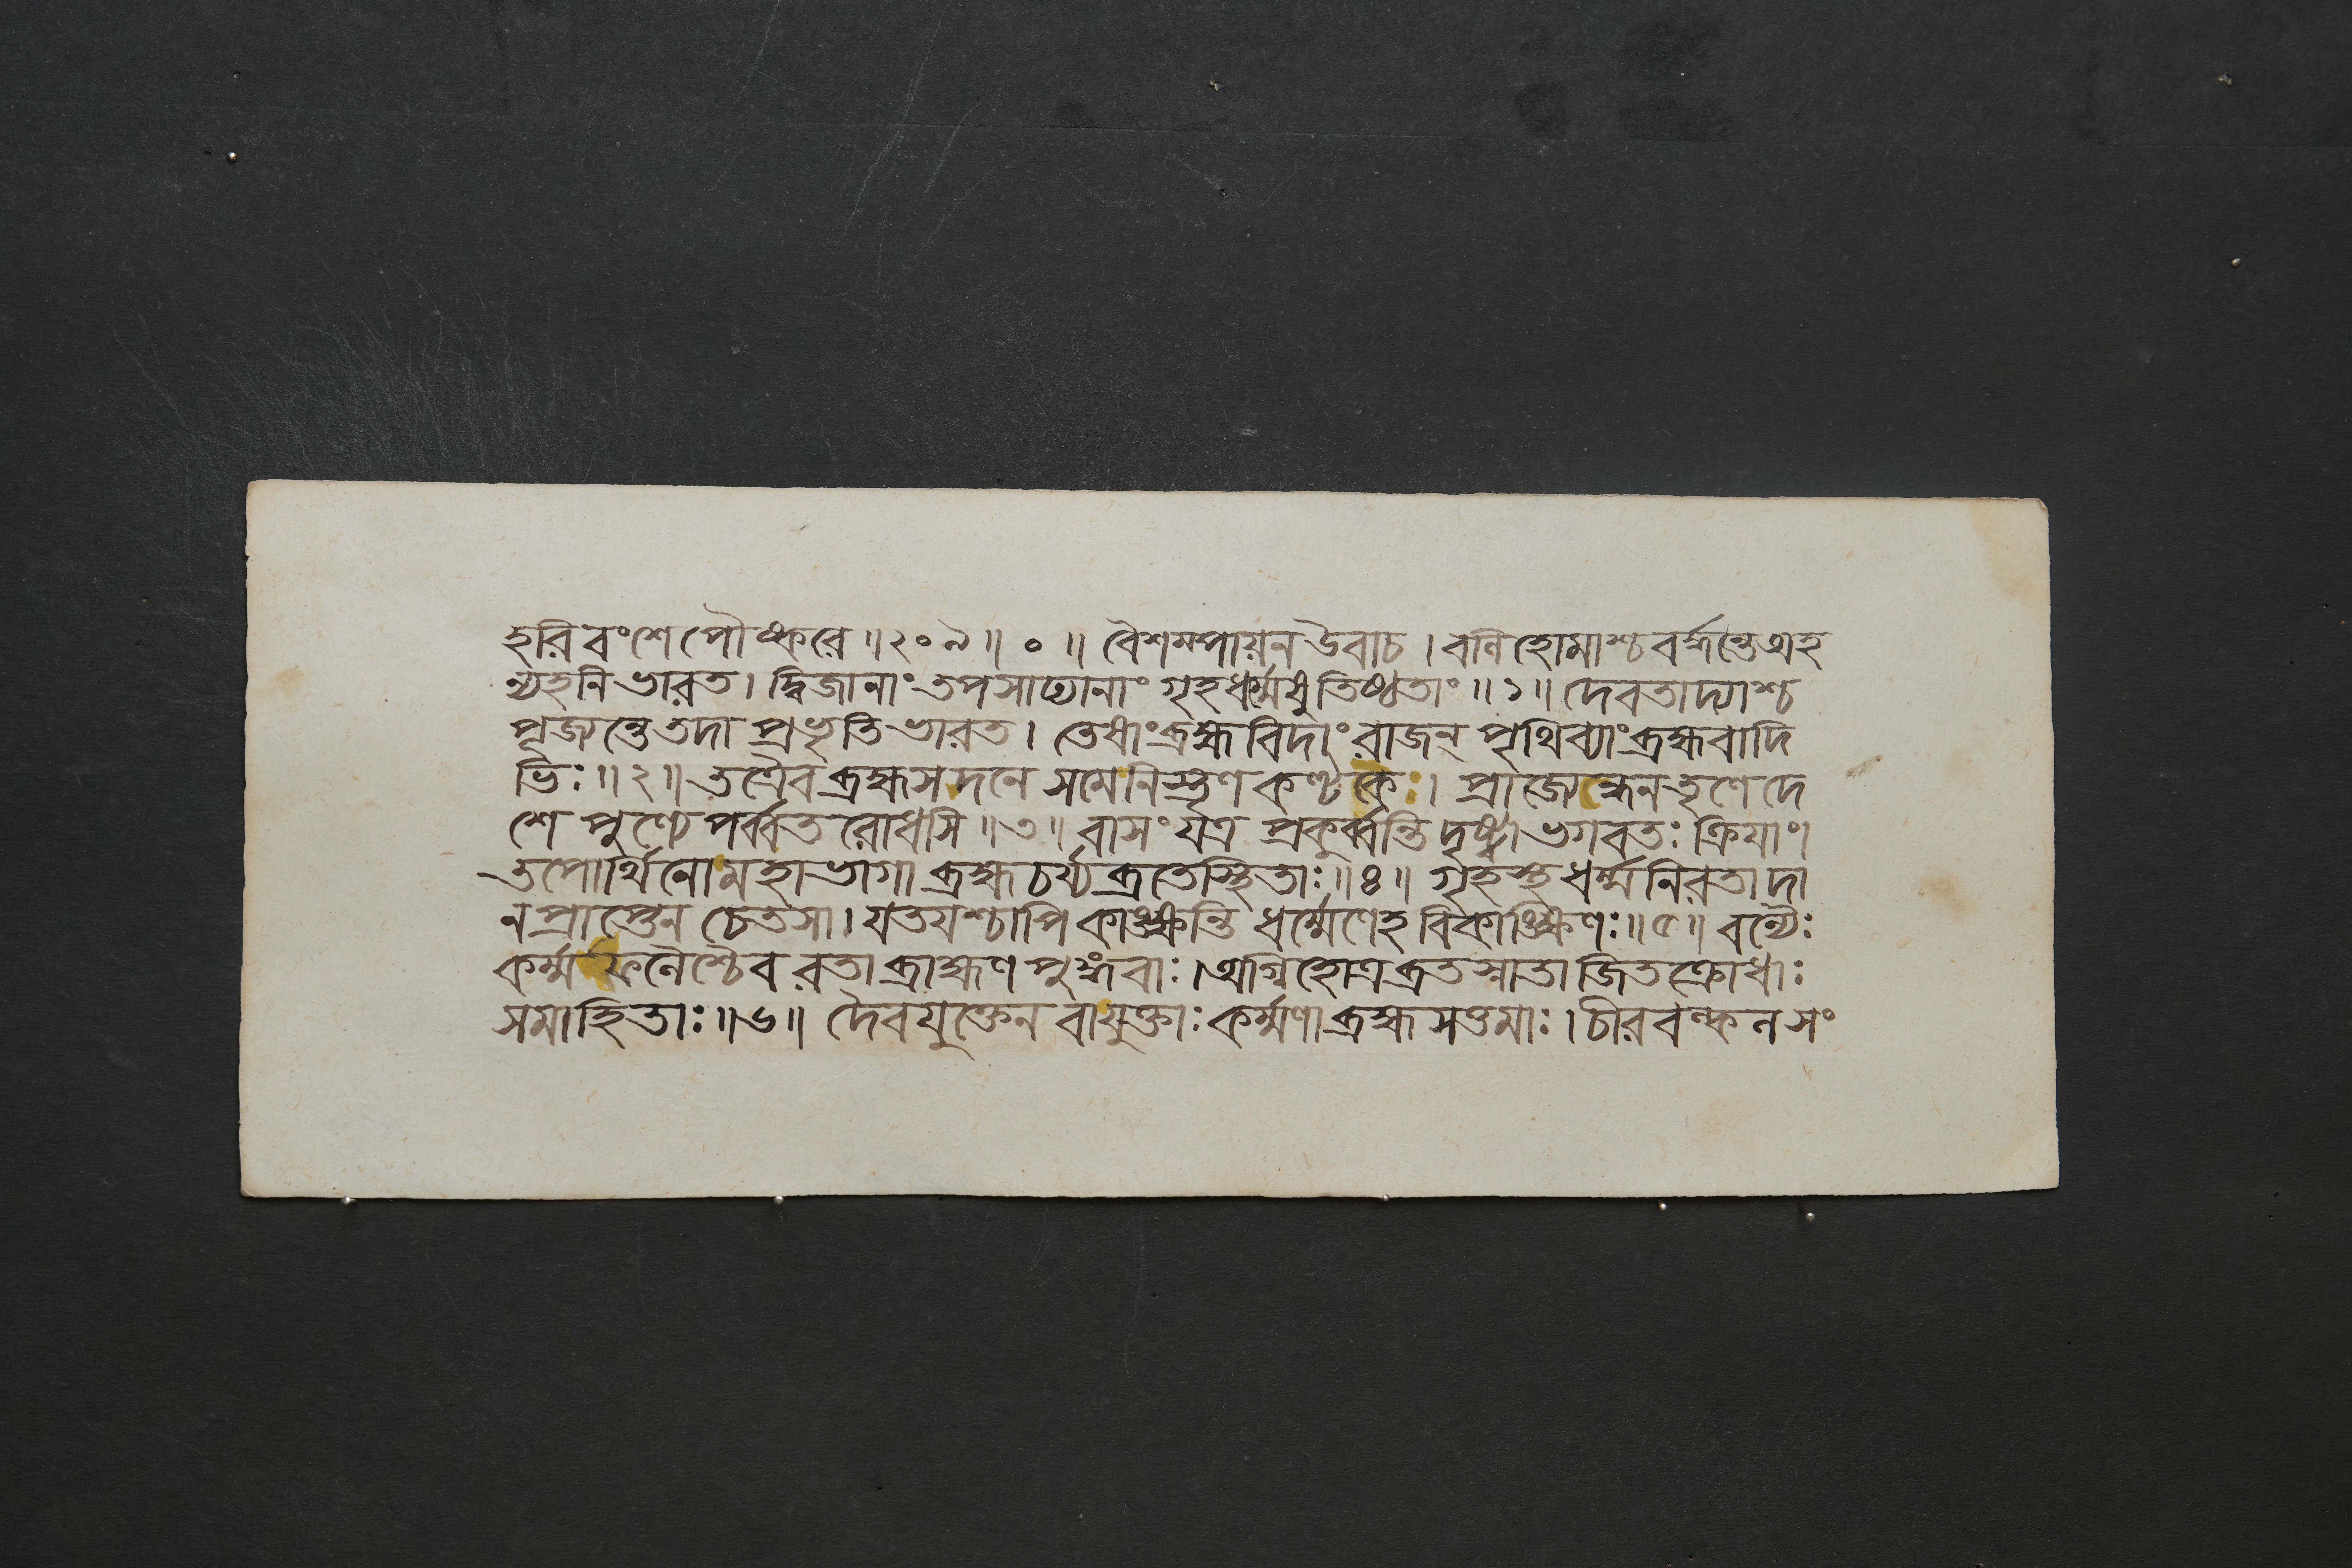 হরিবংশে পৌষ্করে ॥ ২০৯ ॥ ০ ॥ বৈশম্পায়ন উবাচ । বলি হোমাশ্চ বর্দ্ধন্তে অহ
ন্যহনি ভারত । দ্বিজানাং তপসাঢ্যানাং গৃহধর্ম্মেষু তিষ্ঠতাং ॥ ১ ॥ দেবতাদ্যাশ্চ
পূজ্যন্তে তদা প্রভৃতি ভারত । তেষাং ব্রহ্মবিদাং রাজন্ পৃথিব্যাং ব্রহ্মবাদি
ভিঃ ॥ ২ ॥ তত্রৈব ব্রহ্মসদনে সমে নিস্তৃণকণ্টকে । প্রাজ্যেন্ধনতৃণে দে
শে পুণ্যে পর্ব্বতরোধসি ॥ ৩ ॥ বাসং যত্র প্রকুর্ব্বন্তি দৃষ্ট্বা ভগবতঃ ক্রিযাং ।
তপোর্থিনো মহাভাগা ব্রহ্মচর্য্যব্রতে স্থিতাঃ ॥ ৪ ॥ গৃহস্থধর্ম্মনিরতা দা
নপ্রাপ্তেন চেতসা । যতয়শ্চাপি কাঙ্ক্ষন্তি ধর্ম্মেণেহ বিকাঙ্ক্ষিণঃ ॥ ৫ ॥ বন্যৈঃ
কর্ম্মফলৈশ্চৈব রতা ব্রাহ্মণপুঙ্গবাঃ । অগ্নিহোত্রব্রতস্নাতা জিতক্রোধাঃ
সমাহিতাঃ ॥ ৬ ॥ দৈবযুক্তেন বা যুক্তাঃ কর্ম্মণা ব্রহ্মসত্তমাঃ । চীরবল্কলসং